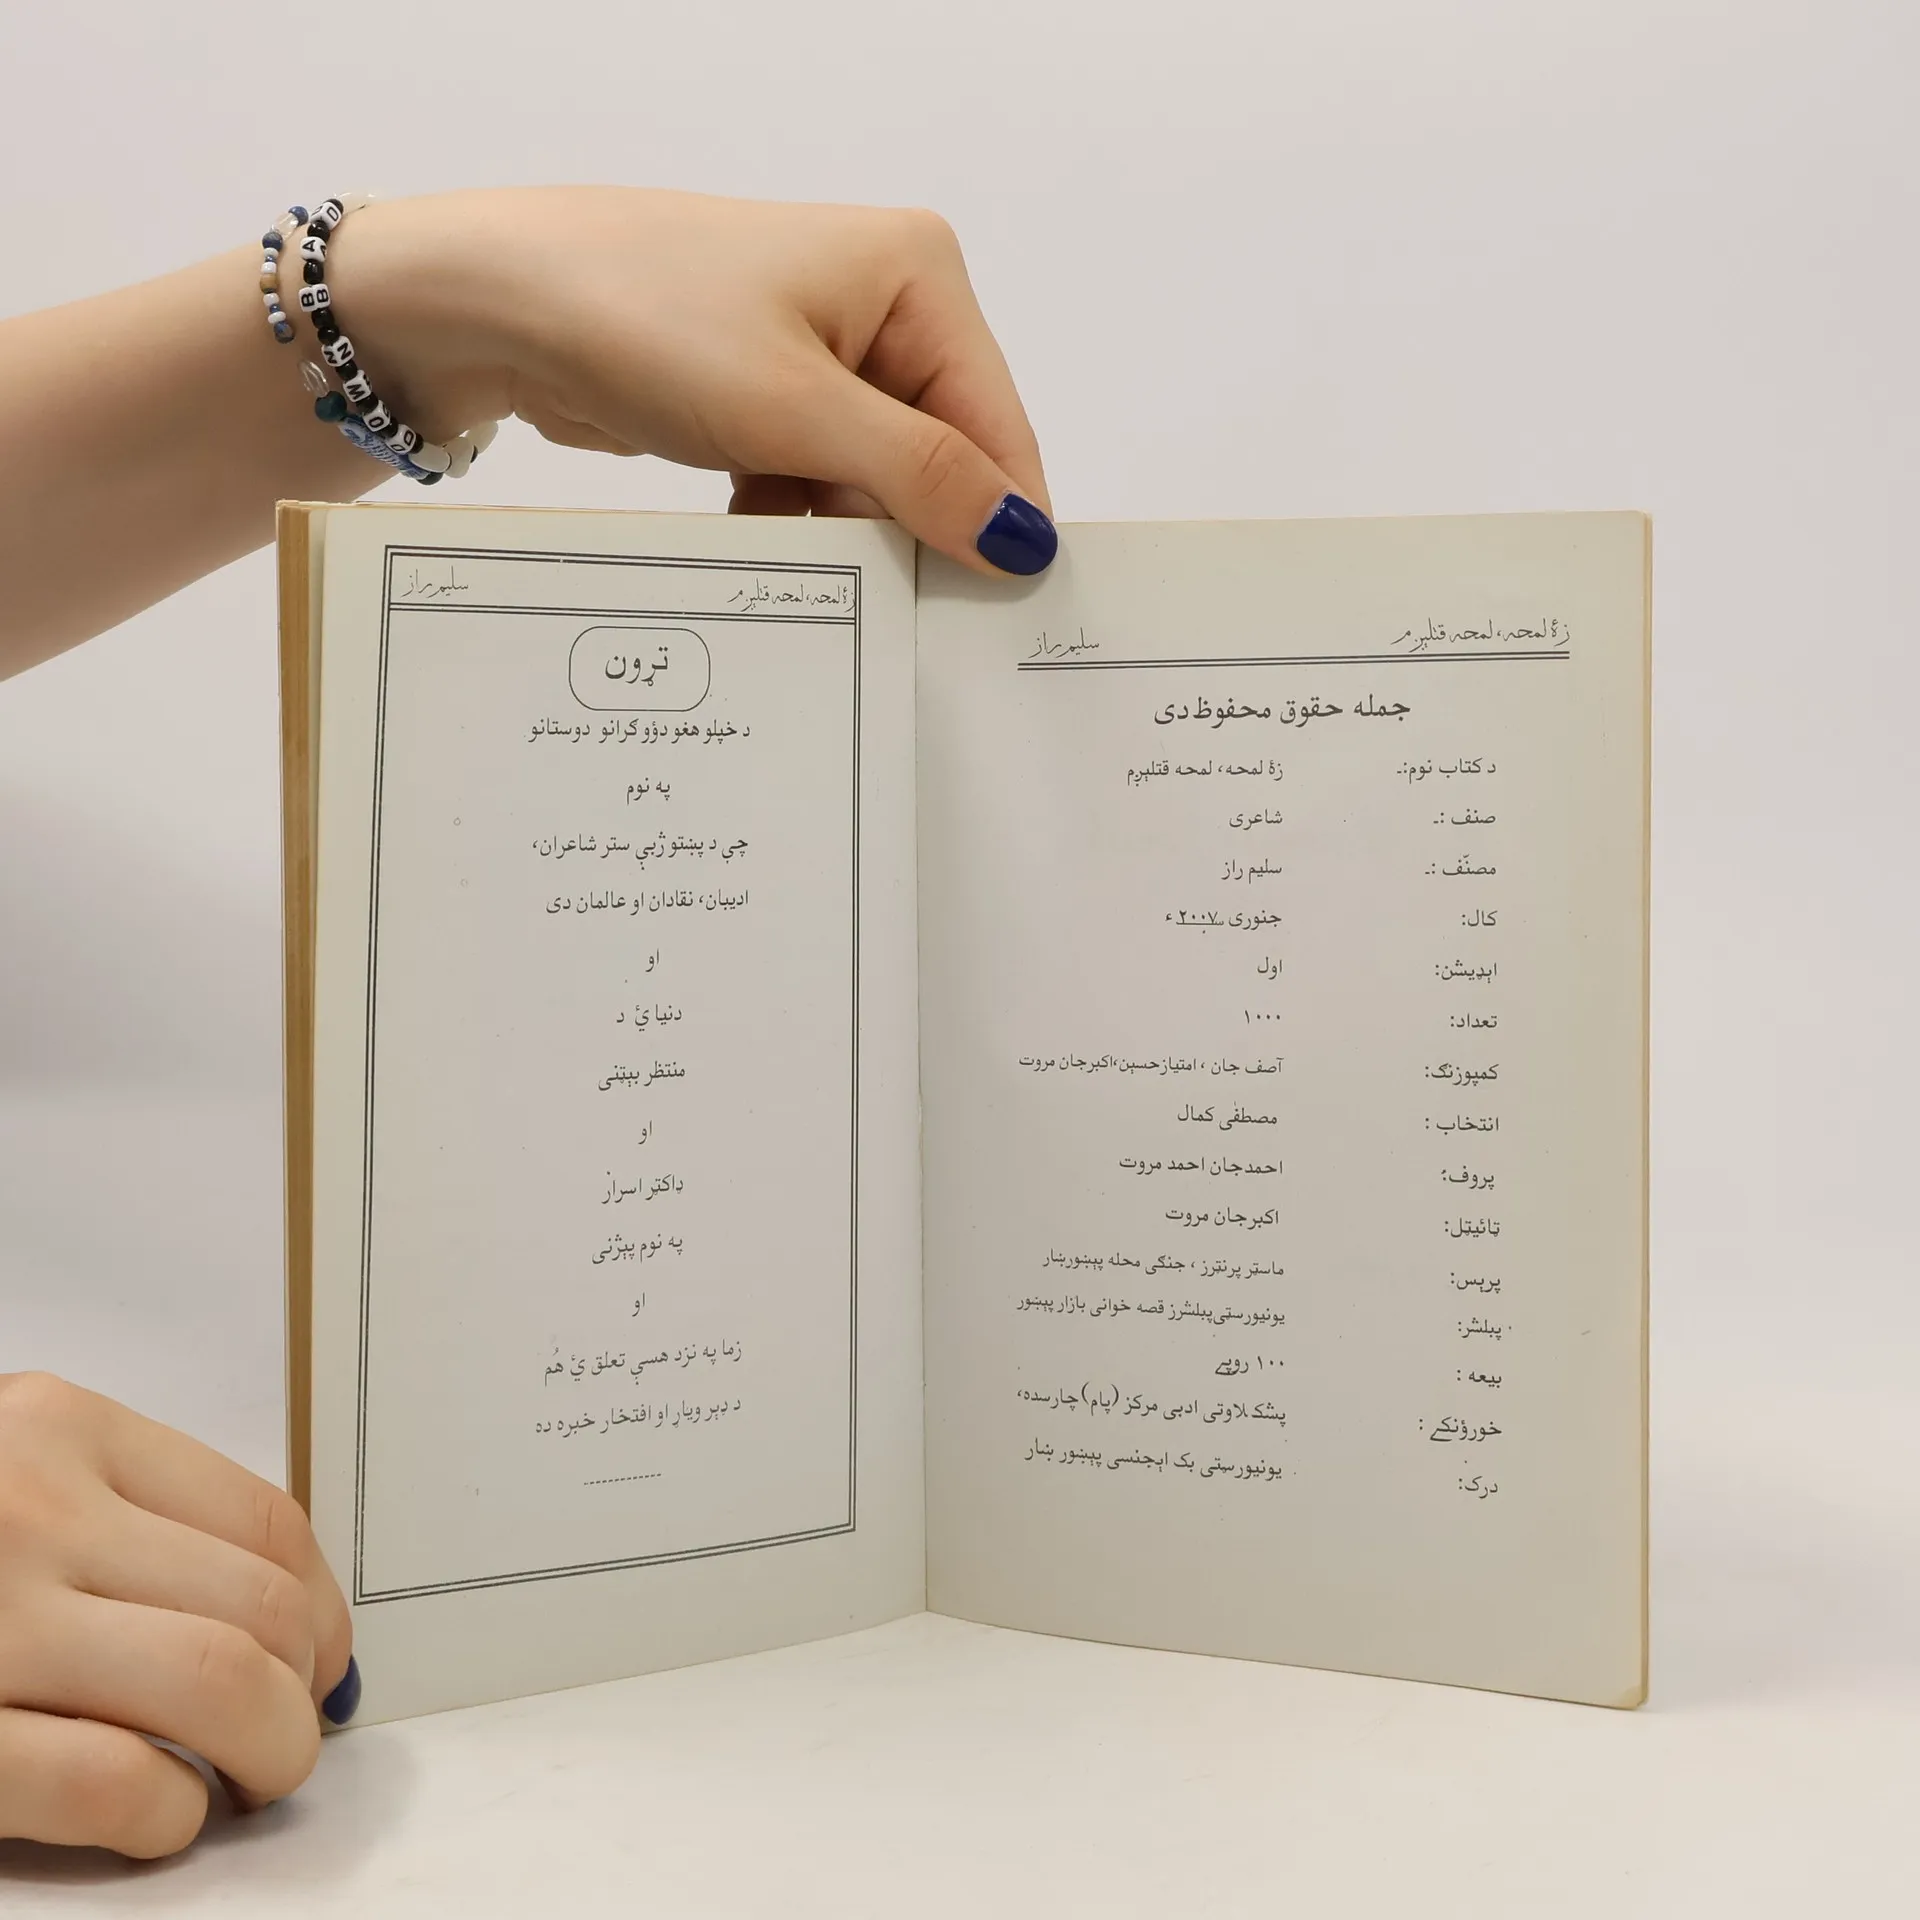 زۀ لمحه، لمحه قتلېږم سليم راز
جمله حقوق محفوظ دی
د کتاب نوم:۔ زۀ لمحه، لمحه قتلېږم
صنف :۔ شاعری
مصنّف :۔ سليم راز
کال: جنوری ۲۰۰۷ء
اېډيشن: اول
تعداد: ۱۰۰۰
کمپوزنګ: آصف جان ، امتيازحسېن،اکبرجان مروت
انتخاب : مصطفٰی کمال
پروف: احمدجان احمد مروت
ټائيټل: اکبرجان مروت
پرېس: ماسټر پرنټرز ، جنګی محله پېښورښار
پبلشر: يونيورسټی پبلشرز قصه خوانی بازار پېښور
بيعه : ۱۰۰ روپے
خورؤنکے : پشکلاوتی ادبی مرکز (پام) چارسده،
درک: يونيورسټی بک اېجنسی پېښور ښار
زۀ لمحه، لمحه قتلېږم سليم راز
تړون
د خپلو هغو دؤو ګرانو دوستانو
په نوم
چې د پښتو ژبې ستر شاعران،
اديبان، نقادان او عالمان دی
او
دنيا ئ د
منتظر بېټنی
او
ډاکټر اسرار
په نوم پېژنی
او
زما په نزد هسې تعلق ئ هُم
د ډېر وياړ او افتخار خبره ده
-------------
D A B B Z W O D